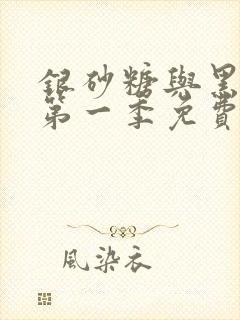 銀砂糖與黑
第一季免費
風染衣